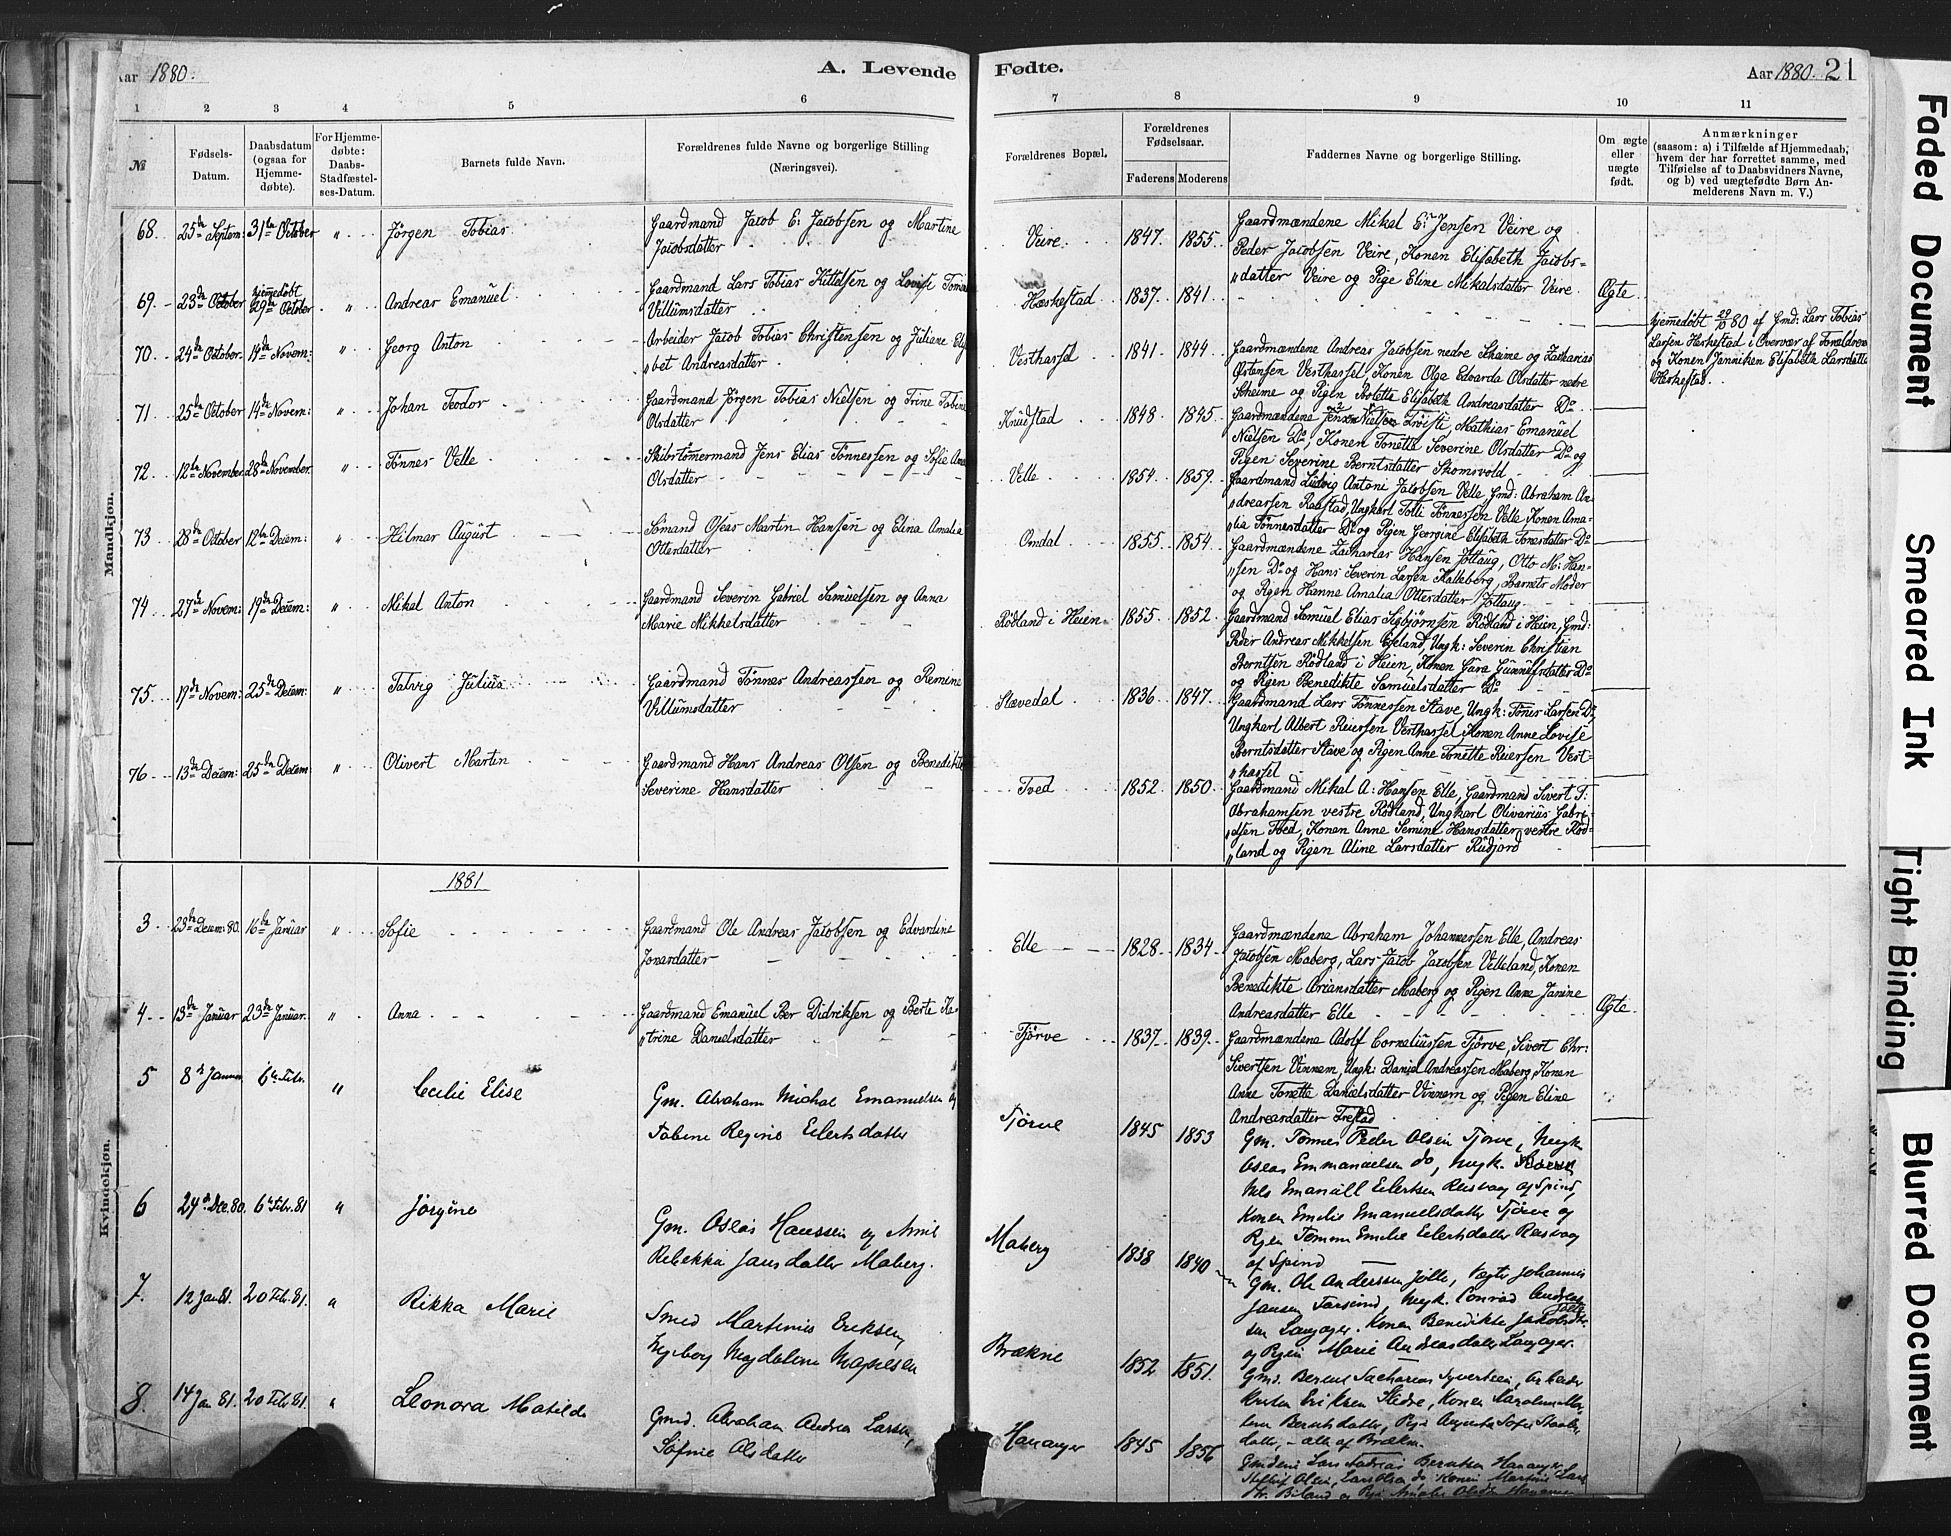 Aar 1880. A. Levende Fødte. Aar 1880. 21
1 2 3 4 5 6 7 8 9 10 11
№
Fødsels-
Datum.
Daabsdatum
(ogsaa for
Hjemme-
døbte).
For Hjemme-
døbte:
Daabs-
Stadfæstel-
ses-Datum.
Barnets fulde Navn.
Forældrenes fulde Navne og borgerlige Stilling
(Næringsvei).
Forældrenes Bopæl.
Forældrenes
Fødselsaar.
Faderens Moderens
Faddernes Navne og borgerlige Stilling.
Om ægte
eller
uægte
født.
Anmærkninger
(saasom: a) i Tilfælde af Hjemmedaab,
hvem der har forrettet samme, med
Tilføielse af to Daabsvidners Navne,
og b) ved uægtefødte Børn An-
melderens Navn m. V.)
Mandkjøn.
68. 25de Septem: 31te October " Jörgen Tobias
Gaardmand Jacob E. Jacobsen og Martine
Jacobsdatter
Veire. 1847. 1855.
Gaardmændene Mikal E. Jensen Veire og
Peder Jacobsen Veire, Konen Elisabeth Jacobs-
"datter Veire og Pige Eline Mikalsdatter Veire.
69. 23de October hjemmedøbt 29de October " Andreas Emanuel
Gaardmand Lars Tobias Kittelsen og Lovise
Villumsdatter
Hæskestad 1837. 1841. Ægte
hjemmedøbt 29/10 80 af Gmd: Lars Tobias
Larsen Heskestad i Overvær af Forældrene
og Konen Janniken Elisabeth Larsdatter
Heskestad.
70. 24de October. 14de Novem: " Georg Anton
Arbeider Jacob Tobias Christensen og Juliane Elisa
"bet Andreasdatter
Vesthassel 1841 1844
Gaardmændene Andreas Jacobsen nedre Skeime og Zacharias
Östensen Vesthassel, Konen Olga Edvarda Olsdatter nedre
Skeime og Pigen Elisabeth Andreasdatter Do
71. 25de October 14de Novem: " Johan Teodor
Gaardmand Jörgen Tobias Nielsen og Trine Tobine
Olsdatter
Knudstad 1848 1845
Gaardmændene Jens Nielsen Mathias Emanuel
Nielsen Do, Konen Tonette Severine Olsdatter Do og
Pigen Severine Berntsdatter Skomsvold
72. 12te November 28de November. " Tönnes Velle
Skibstömmermand Jens Elias Tönnessen og Sofie
Olsdatter
Velle 1854 1859
Gaardmand Ludvig Antoni Jacobsen Velle, Gmd: Abraham An
"dreassen Raustad, Ungkarl Tolli Tönnessen Velle, Konen Ama-
"lia Tönnesdatter Do og Pigen Georgine Elisabeth Tönnesdatter Do
73 28de October 12te Decem: " Hilmar August
Sömand Oseas Martin Hansen og Elina Amalia
Ottersdatter
Omdal 1855 1854
Gaardmændene Zacharias Hansen Jöllaug, Otto M. Han-
"sen Do og Hans Severin Larsen Kalleberg, Barnets Moder
og Pigen Hanne Amalia Ottersdatter Jöllaug
74 27de Novem: 19de Decem: " Mikal Anton
Gaardmand Severin Gabriel Samuelsen og Anna
Marie Mikkelsdatter
Rödland i Heien 1855 1852
Gaardmand Samuel Elias Sigbjörnsen Rödland i Heien, Gmd:
Peder Andreas Mikkelsen Eseland, Ungk: Severin Christian
Berntsen Rödland i Heien, Konen Gura Gunnufsdatter Do
og Pigen Benedikte Samuelsdatter Do
75. 19de Novem: 25de Decem: " Talvig Julius
Gaardmand Tönnes Andreassen og Remine
Villumsdatter
Stavedal 1836 1847
Gaardmand Lars Tönnessen Stave, Ungk: Tönes Larsen Do
Ungkarl Albert Reiersen Vesthassel, Konen Anne Lovise
Berntsdatter Stave og Pigen Anne Tonette Reiersen Vest-
"hassel
76 13de Decem: 25de Decem: " Olivert Martin
Gaardmand Hans Andreas Olsen og Benedikte
Severine Hansdatter
Tved 1852 1850
Gaardmand Mikal A. Hansen Elle, Gaardmand Sivert T.
Abrahamsen vestre Rödland, Ungkarl Olivarius Gabri-
"elsen Tved, Konen Anne Semine Hansdatter vestre Röd-
"land og Pigen Aline Larsdatter Rudjord
Kvindekjøn.
1881
3 23de Decem: 80. 16de Januar " Sofie
Gaardmand Ole Andreas Jacobsen og Edvardine
Jonasdatter
Elle 1828 1834
Gaardmændene Abraham Johannessen Elle, Andreas
Jacobsen Maberg, Lars Jacob Jacobsen Velleland, Konen
Benedikte Ariansdatter Maberg og Pigen Anne Janine
Andreasdatter Elle
4 13de Januar 23de Januar. " Anna
Gaardmand Emanuel Ber Didriksen og Berte Ka-
"trine Danielsdatter
Tjörve 1837 1839 Ægte.
Gaardmændene Adolf Corneliussen Tjörve, Sivert Chr:
Sivertsen Vinnem, Ungk: Daniel Andreassen Maberg, Konen
Anne Tonette Danielsdatter Vinnem og Pigen Eline
Andreasdatter Frestad
5 8de Januar 6te Febr. " Cecilie Elise
Gm. Abraham Michal Emanuelsen og
Tobine Regine Eilertsdatter
Tjörve 1845 1853
Gm. Tönnes Peder Olsen Tjörve, Ungk
Oseas Emmanuelsen do, Ungk.
Nels Emanuell Eilertsen Reisvag af Spind,
Konen Emelie Emanuelsdatter Tjörve og
Pigen Emelie Eilertsdatter Reisvag
af Spind
6 24de Dec. 80. 6te Febr. 81 " Jörgine
Gm. Oseas Hanssen og
Rebekka Jansdatter Maberg.
Maberg 1838 1840
Gm. Ole Anderssen Jölle, Johannes
Jansen Ungk. Conrad Andreas-
sen Langager. Konen Benedikte Jakobsdtr. Jölle
og Pigen Marie Andreasdatter Langager.
7. 12 Jan 81. 20 Febr. 81. " Rikka Marie
Smed Martinius Eriksen,
Ingeborg Magdalene
Brækne 1852 1851.
Gmd. Berent Sacharias Syvertsen,
Eriksen Konen
Berntsdatter, Pige Sofie
datter, – alle af Brækne.
8. 14 Jan 81. 20 Febr. 81. " Leonora Matilde
Gmd. Abraham Andreas Larsen,
Olsdatter
Hananger 1845 1856
Lars Berntsen Hananger
Olsen, Lars Olsen do Konen
Faded Document
Smeared Ink
Tight Binding
Blurred Document